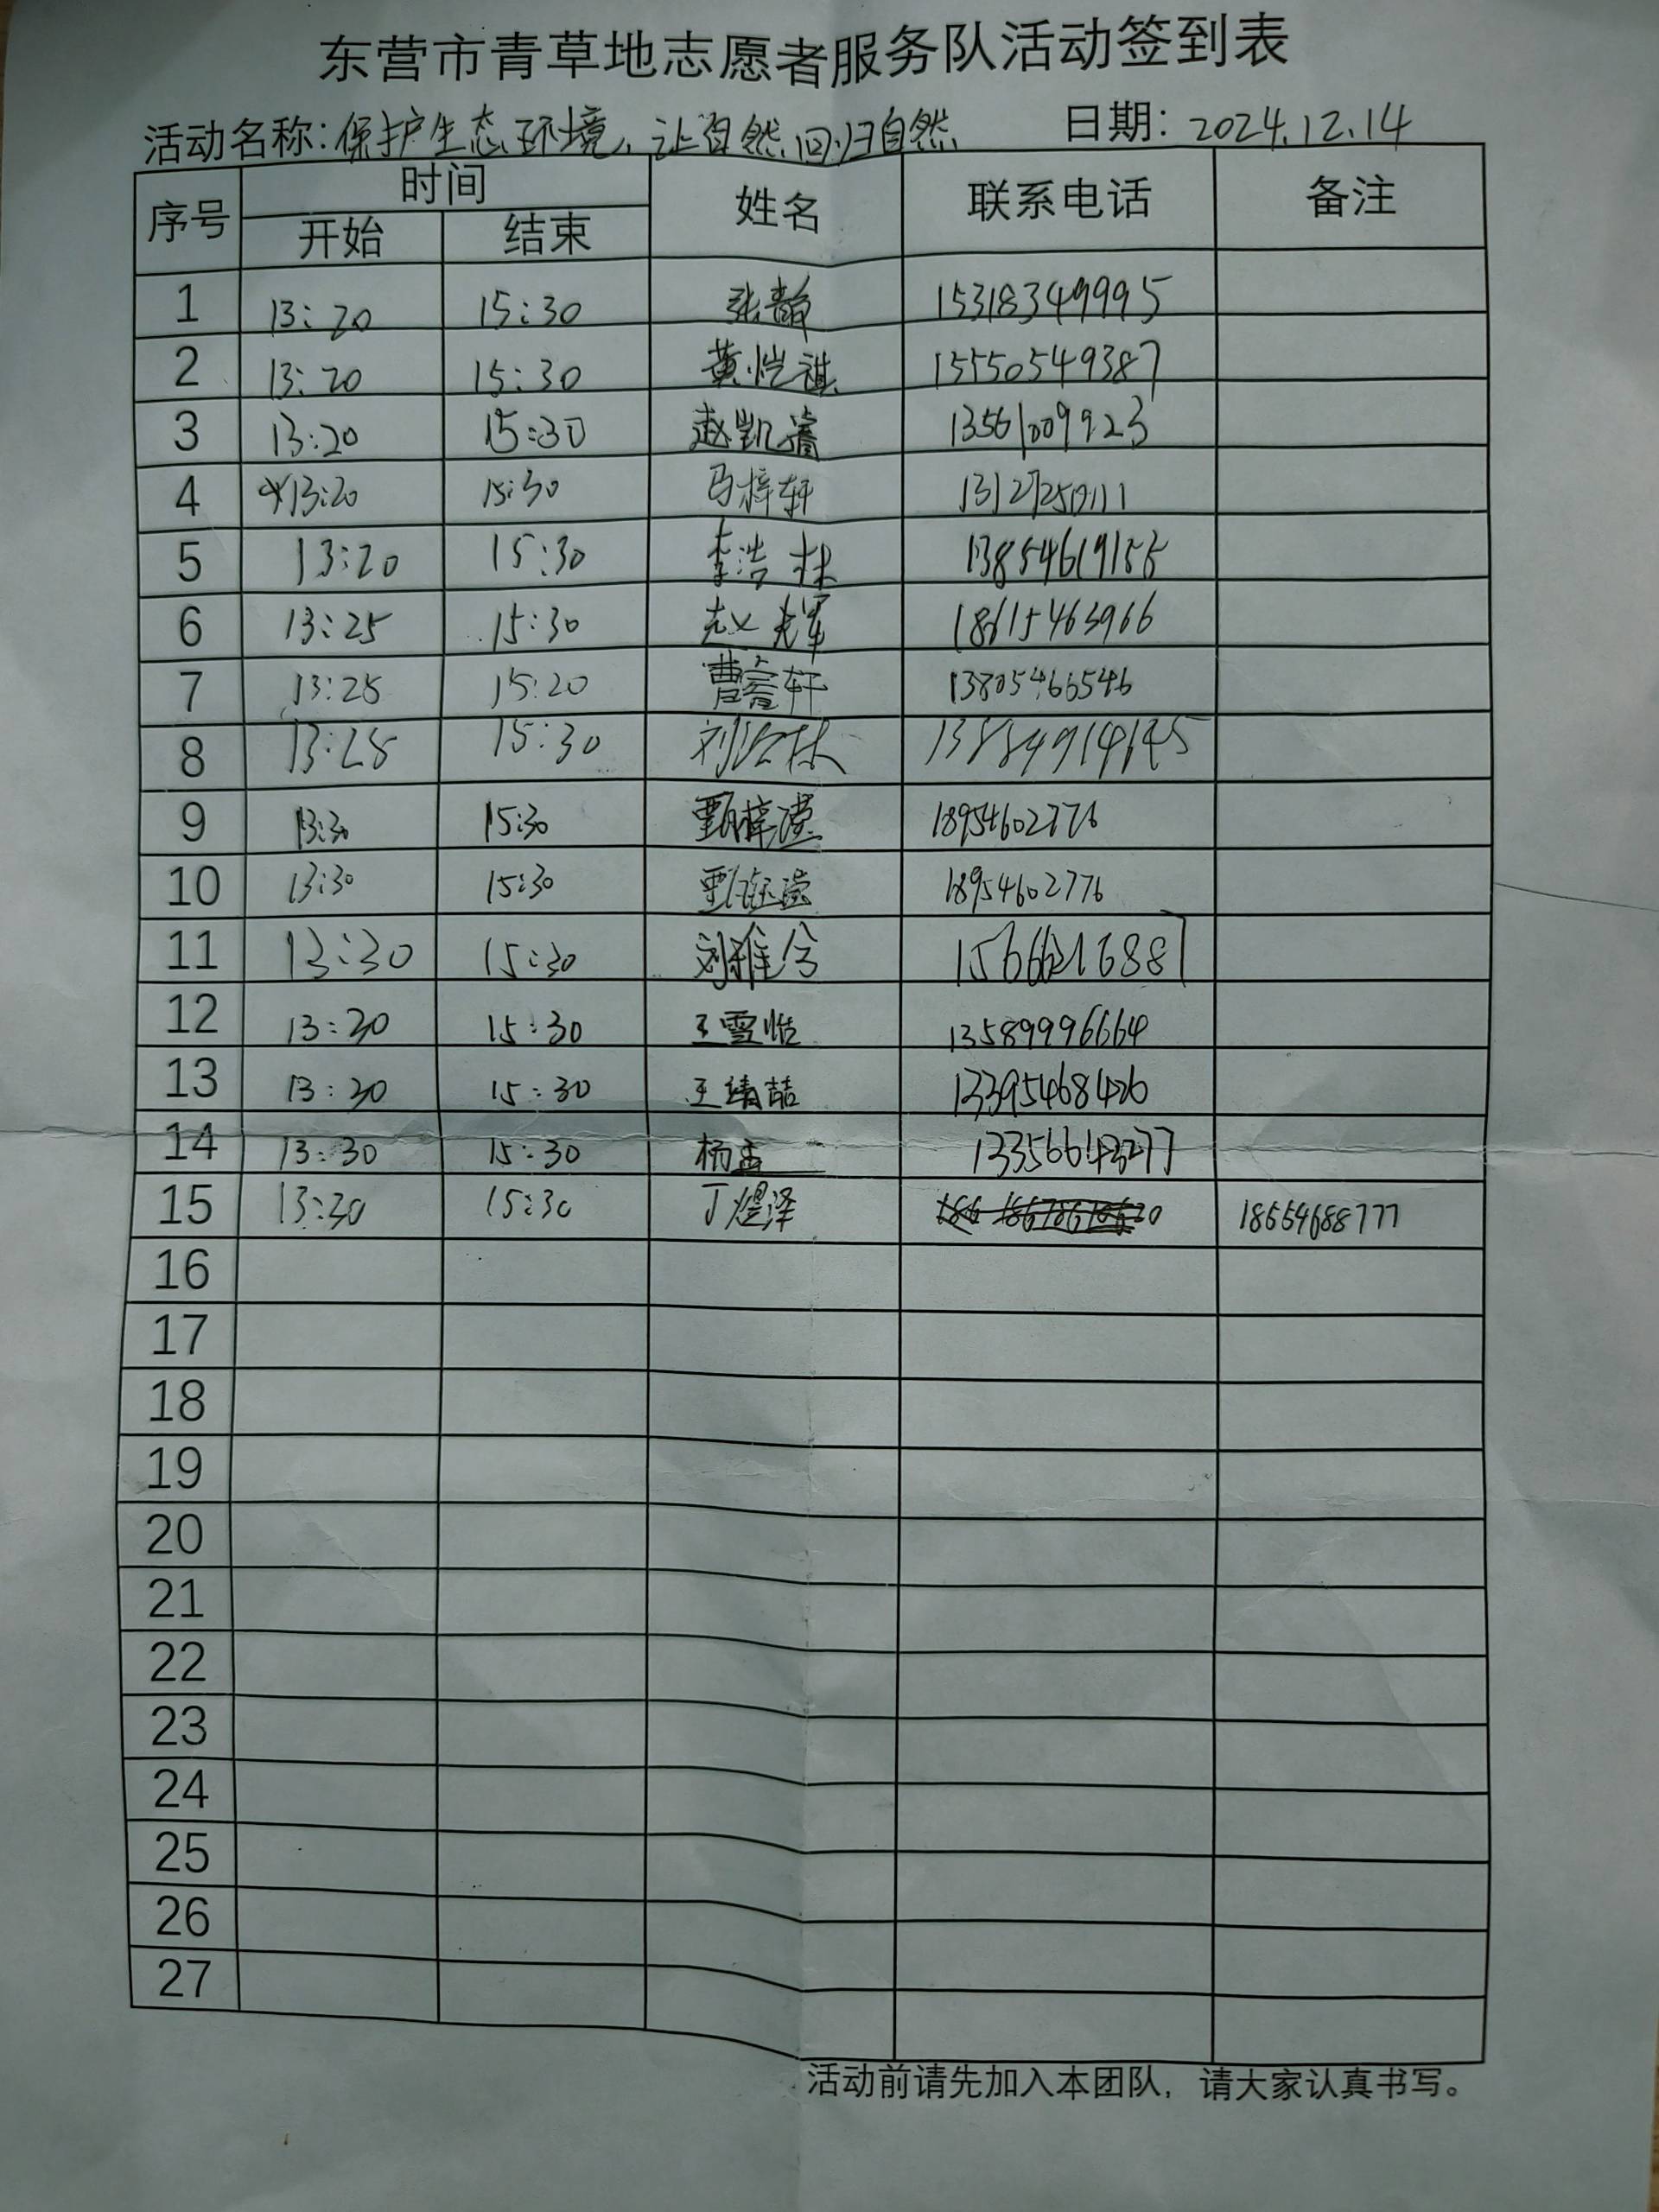 东营市青草地志愿者服务队活动签到表
活动名称:保护生态环境,让自然回归自然 日期: 2024.12.14
序号 时间 姓名 联系电话 备注
开始 结束
1 13:20 15:30 张静 15318349995
2 13:20 15:30 黄恺祺 15550549387
3 13:20 15:30 赵凯睿 13561009923
4 13:20 15:30 马梓轩
5 13:20 15:30 李浩林 13854619155
6 13:25 15:30 赵光军 18615463966
7 13:25 15:20 曹睿轩 13805466546
8 13:28 15:30
9 13:30 15:30 18954602776
10 13:30 15:30 18954602776
11 13:30 15:30 刘雅兮 15666216887
12 13:30 15:30 王雪恬 13589996664
13 13:30 15:30 王靖喆 13395468426
14 13:30 15:30 杨孟
15 13:30 15:30 丁煜泽 18654688777
16
17
18
19
20
21
22
23
24
25
26
27
活动前请先加入本团队,请大家认真书写。